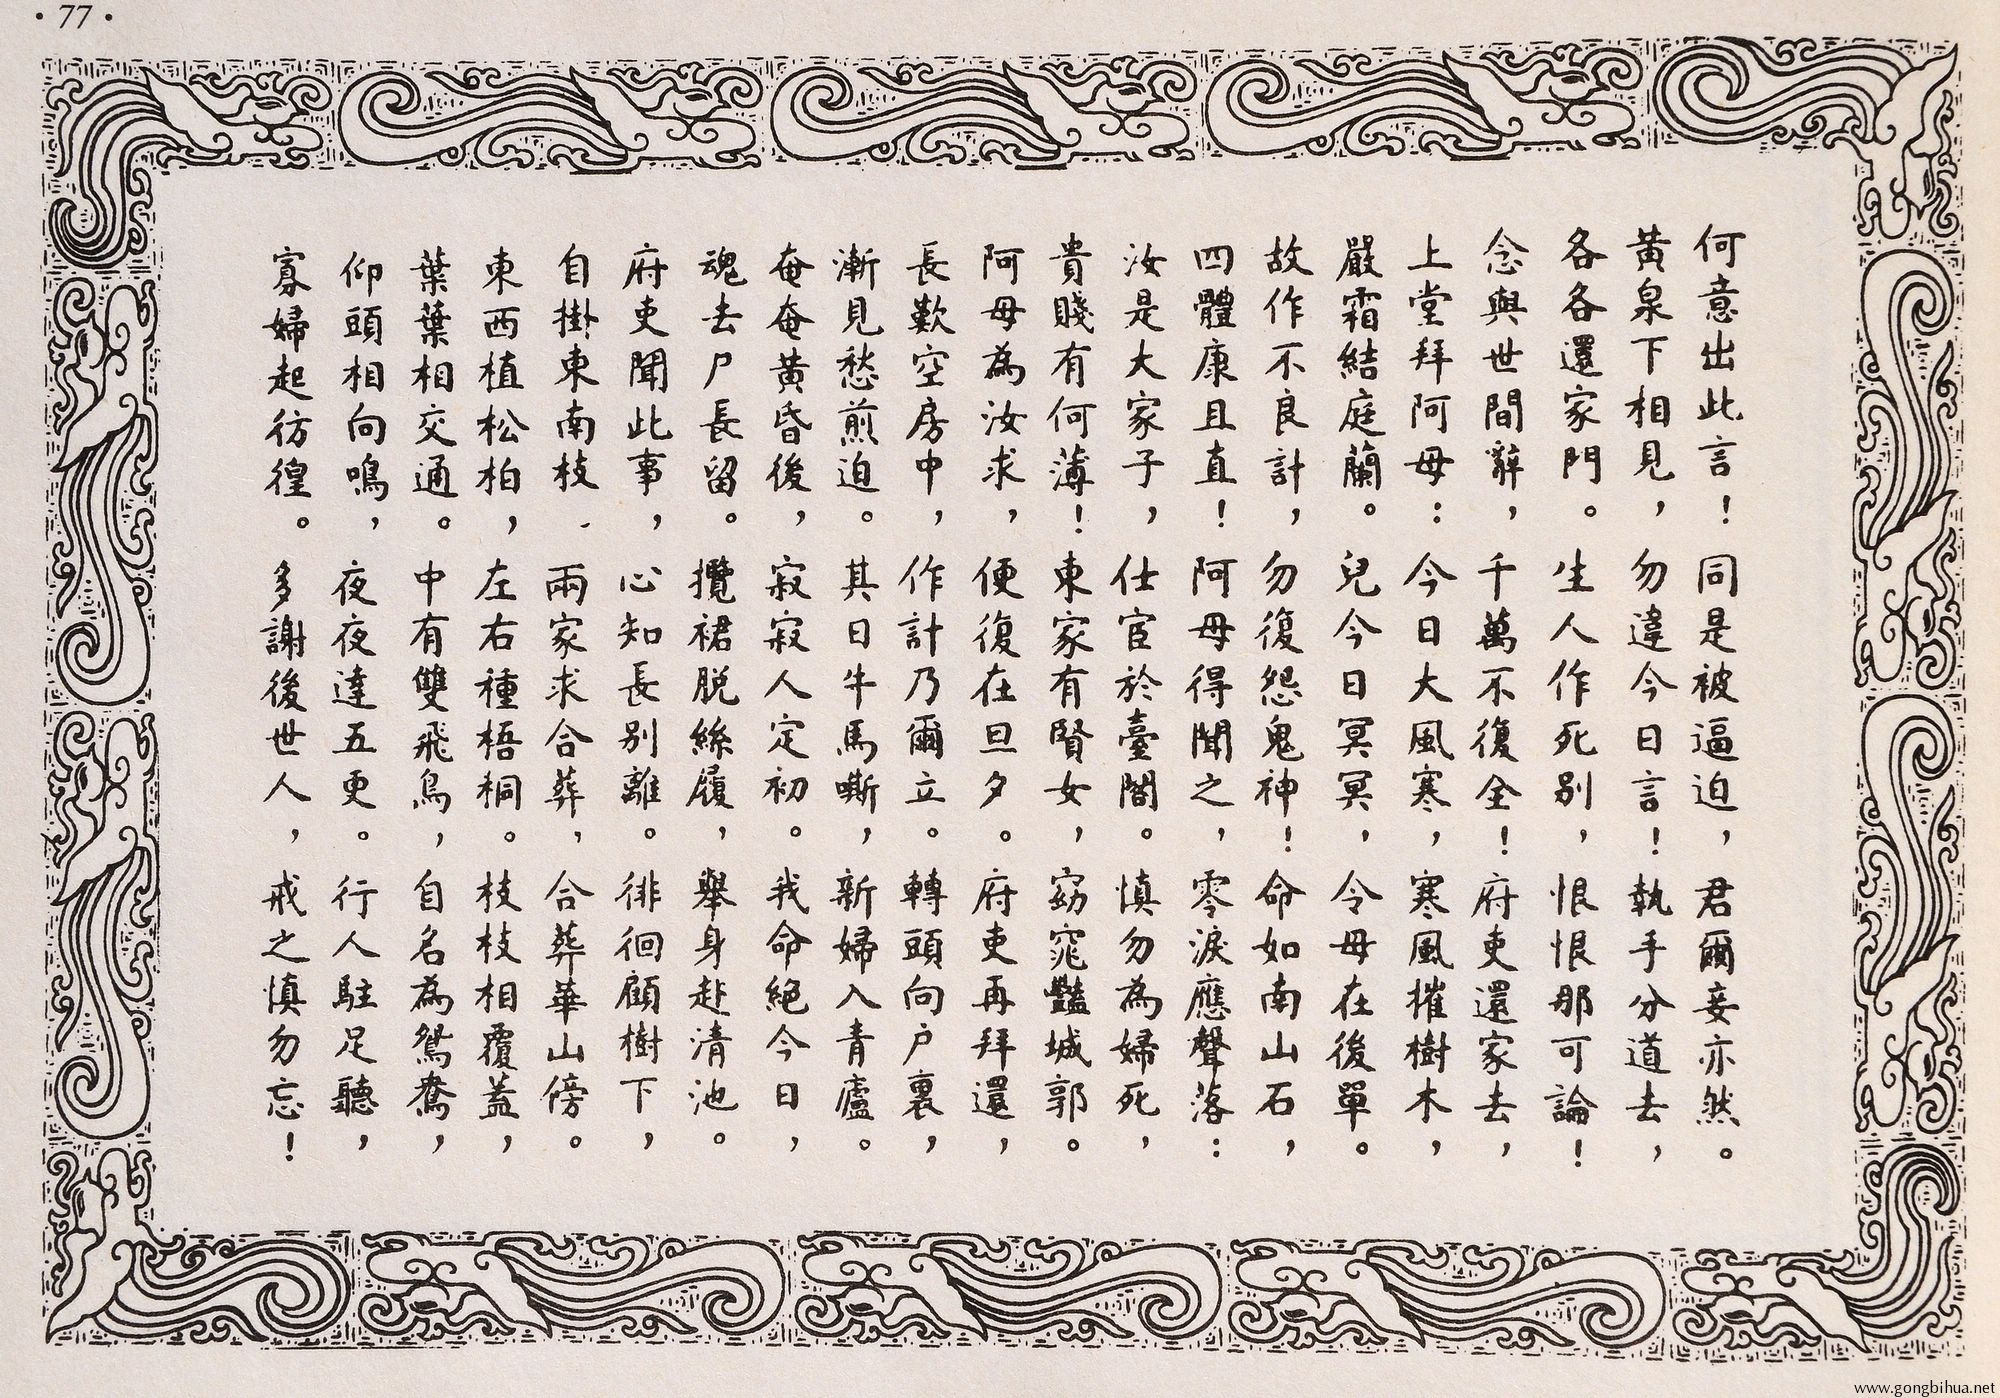 · 77 ·
何意出此言！同是被逼迫，君爾妾亦然。
黃泉下相見，勿違今日言！執手分道去，
各各還家門。生人作死別，恨恨那可論！
念與世間辭，千萬不復全！府吏還家去，
上堂拜阿母：今日大風寒，寒風摧樹木，
嚴霜結庭蘭。兒今日冥冥，令母在後單。
故作不良計，勿復怨鬼神！命如南山石，
四體康且直！阿母得聞之，零淚應聲落：
汝是大家子，仕宦於臺閣。慎勿為婦死，
貴賤有何薄！東家有賢女，窈窕豔城郭。
阿母為汝求，便復在旦夕。府吏再拜還，
長歎空房中，作計乃爾立。轉頭向户裏，
漸見愁煎迫。其日牛馬嘶，新婦入青廬。
奄奄黄昏後，寂寂人定初。我命絕今日，
魂去尸長留。攬裙脱絲履，舉身赴清池。
府吏聞此事，心知長别離。徘徊顧樹下，
自掛東南枝、兩家求合葬，合葬華山傍。
東西植松柏，左右種梧桐。枝枝相覆蓋，
葉葉相交通。中有雙飛鳥，自名為鴛鴦，
仰頭相向鳴，夜夜達五更。行人駐足聽，
寡婦起彷徨。多謝後世人，戒之慎勿忘！
www.gongbihua.net